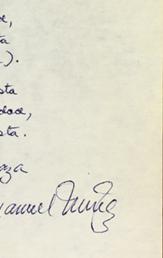 ta
).
sta
dad,
sta.
aza
anuel Muñiz